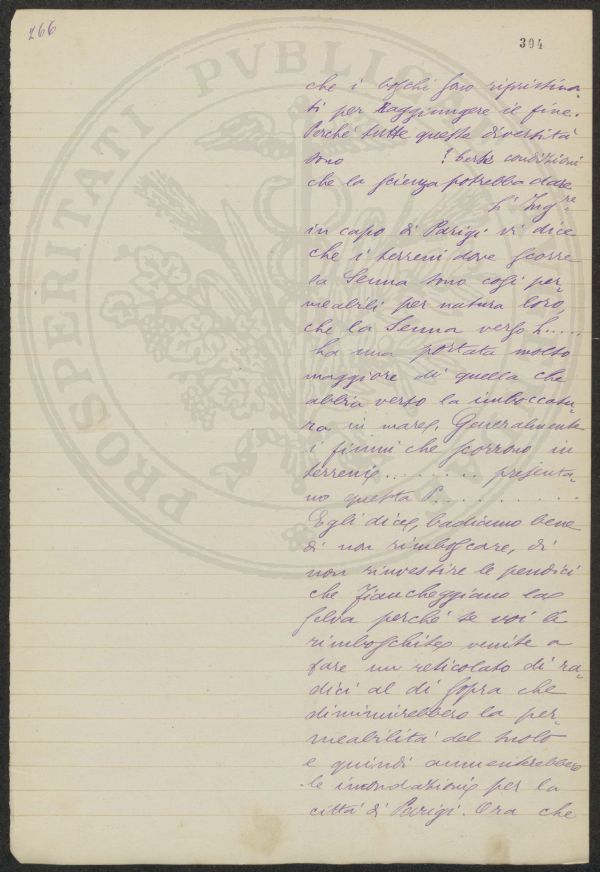 266
304
PROSPERITATI PVBLICAE
che i boschi sono ripristina-
ti per raggiungere il fine.
Perché tutte queste diversità
sono ? condizioni
che la scienza potrebbe dare
L'Ing.re
in capo di Parigi vi dice
che i terreni dove scorre
la Senna sono così per-
meabili per natura loro,
che la Senna verso L.....
ha una portata molto
maggiore di quella che
abbia verso la imboccatu-
ra in mare. Generalmente
i fiumi che scorrono in
terreni ........ presenta-
no questa P..........
Egli dice, badiamo bene
di non rimboscare, di
non rinvestire le pendici
che fiancheggiano la
selva perché se voi le
rimboschite venite a
fare un reticolato di ra-
dici al di sopra che
diminuirebbero la per-
meabilità del suolo
e quindi aumenterebbero
le inondazioni per la
città di Parigi. Ora che